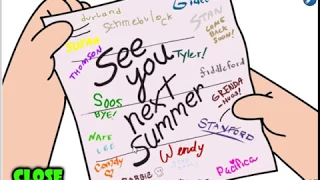 Gide
durland
Schmebulock
STAN
COME
BACK
SOON!
SUSAN
THOMSON
See
you
next
Summer
Tyler!
fiddleford
Soos
BYE!
GRENDA
~HOOS!
STANFORD
NATE
LEE
Candy
Wendy
Pacifica
CLOSE